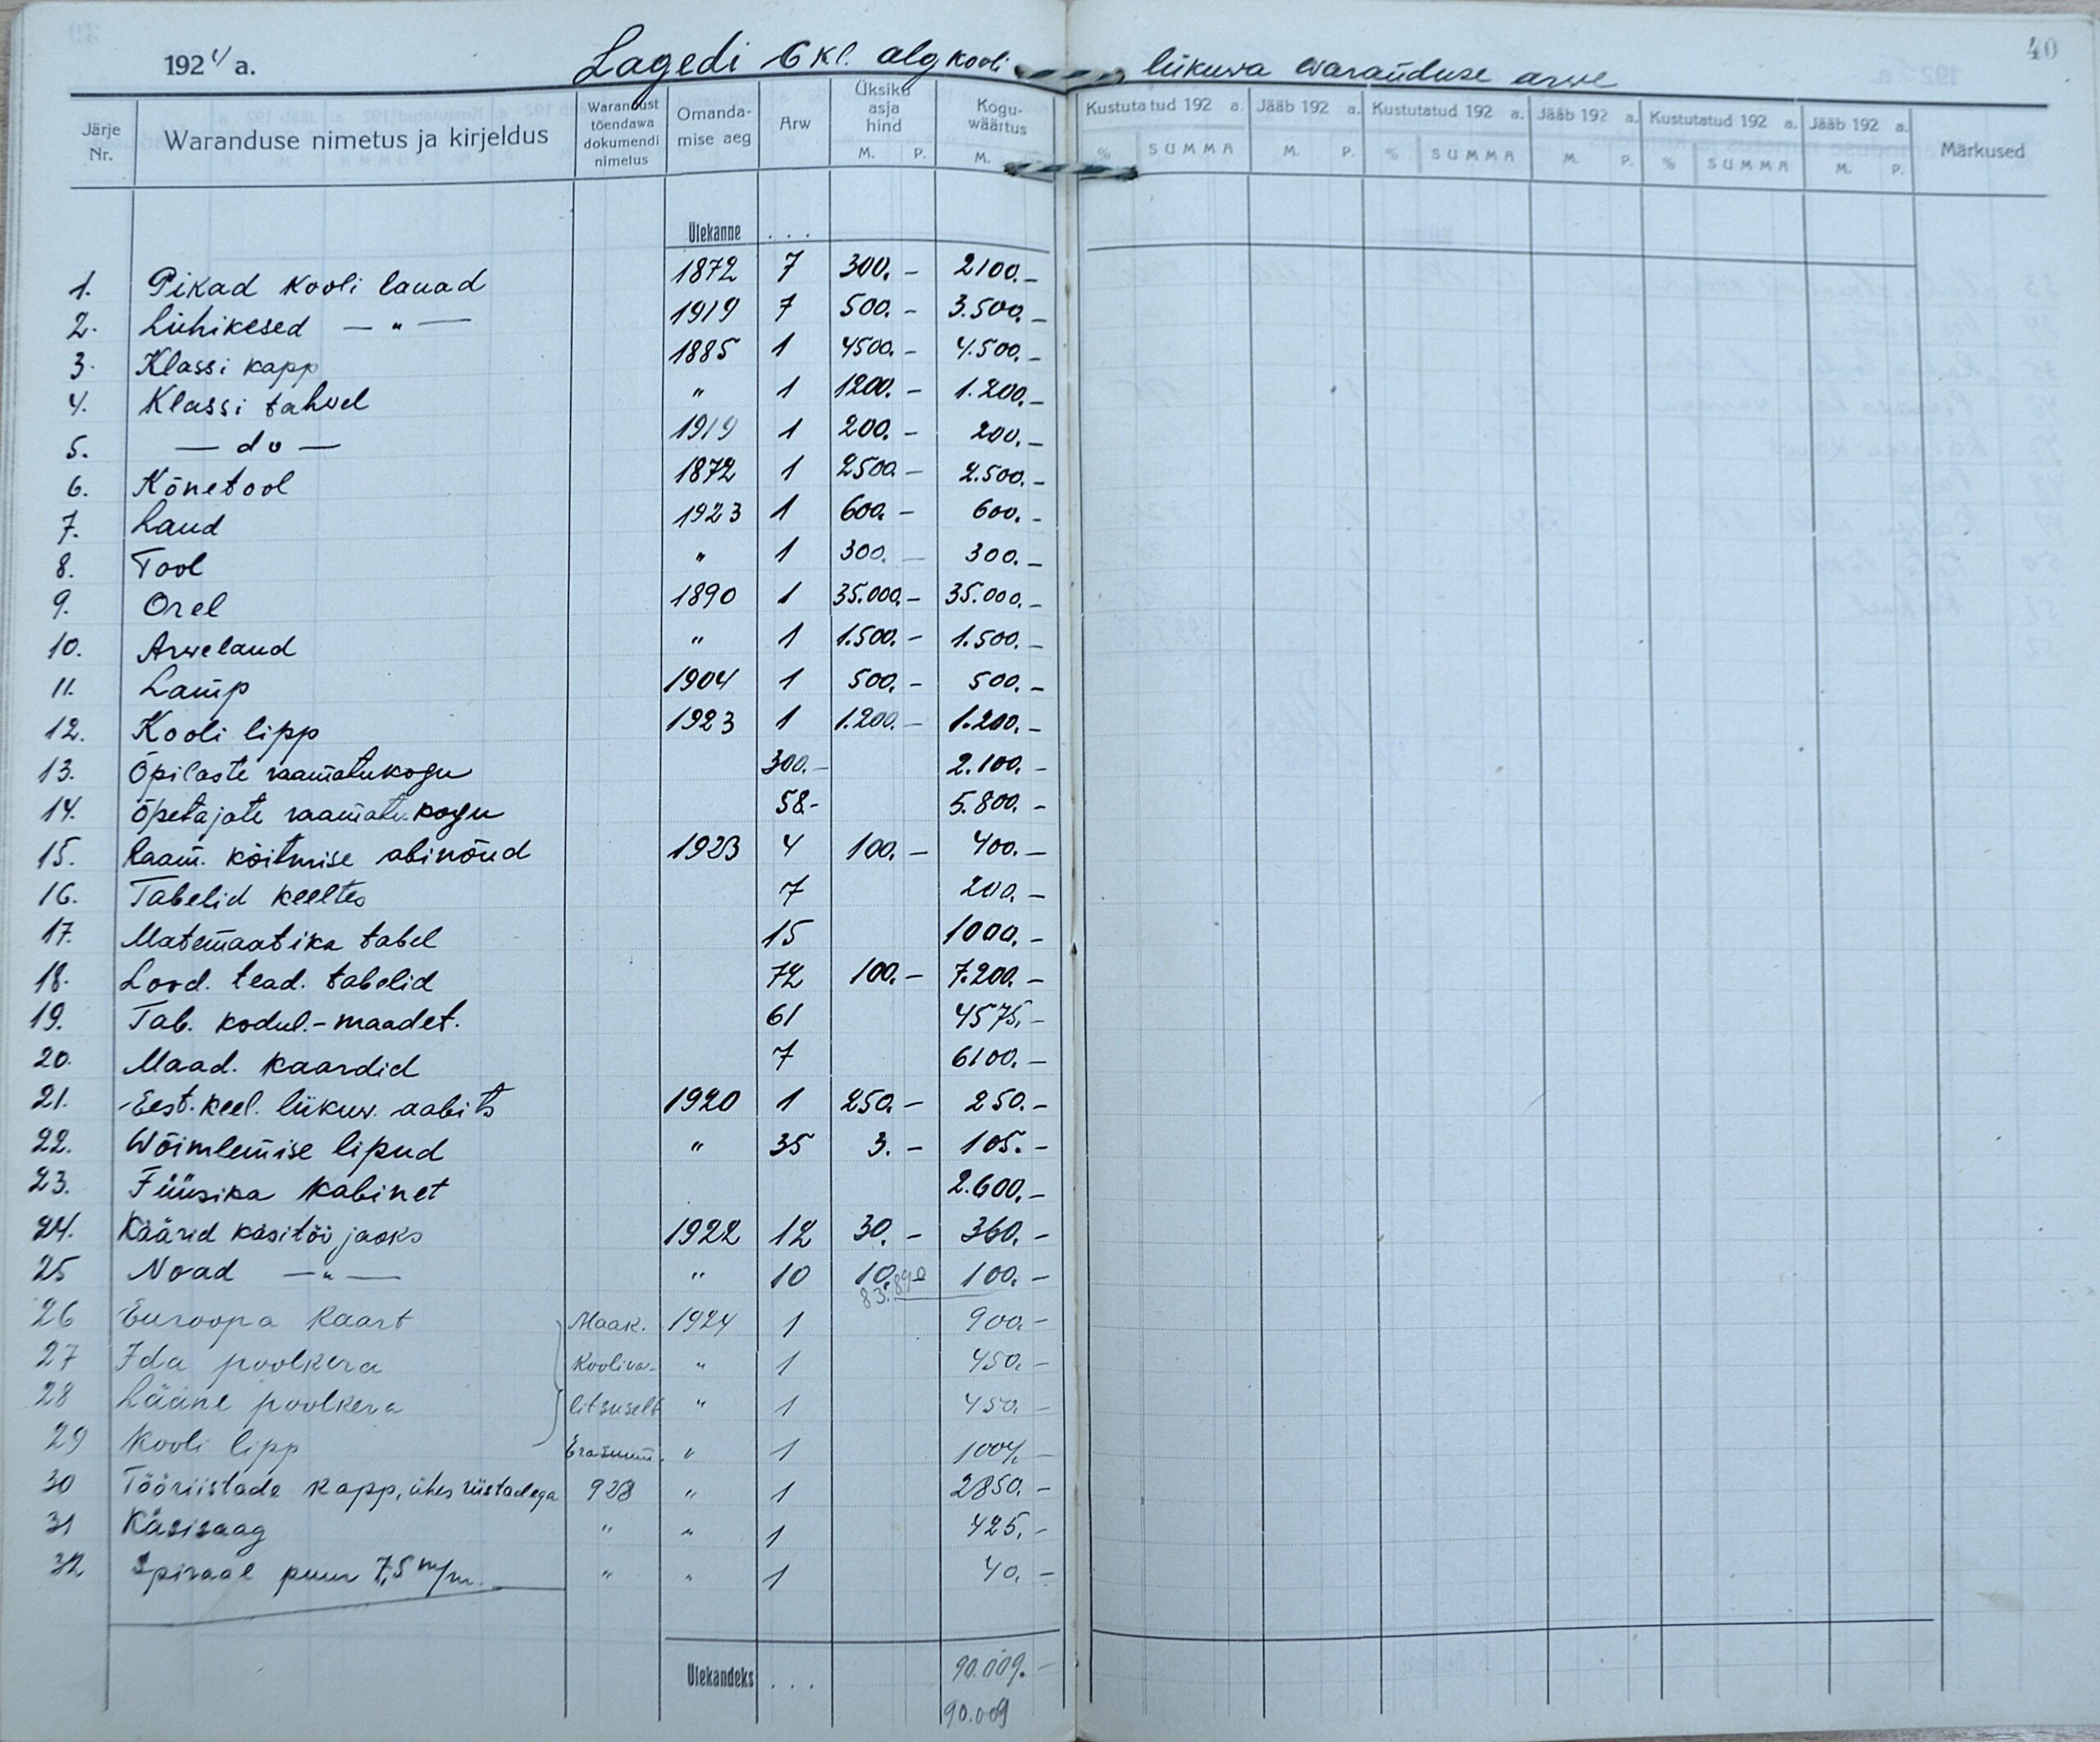 1924 a. Lagedi 6 kl. algkooli liikuwa waranduse arwe 40
Järje Nr. | Waranduse nimetus ja kirjeldus | Warandust tõendawa dokumendi nimetus | Omandamise aeg | Arw | Üksiku asja hind M. P. | Koguwäärtus M. | Kustutatud 192 a. % SUMMA | Jääb 192 a. M. P. | Kustutatud 192 a. % SUMMA | Jääb 192 a. M. P. | Kustutatud 192 a. % SUMMA | Jääb 192 a. M. P. | Märkused
Ülekanne . . .
1. Pikad kooli lauad 1872 7 300.- 2100.-
2. Lühikesed — " — 1919 7 500.- 3.500.-
3. Klassi kapp 1885 1 4500.- 4.500.-
4. Klassi tahvel " 1 1200.- 1.200.-
5. — do — 1919 1 200.- 200.-
6. Kõnetool 1872 1 2500.- 2.500.-
7. Laud 1923 1 600.- 600.-
8. Tool " 1 300.- 300.-
9. Orel 1890 1 35.000.- 35.000.-
10. Arwelaud " 1 1.500.- 1.500.-
11. Lamp 1904 1 500.- 500.-
12. Kooli lipp 1923 1 1.200.- 1.200.-
13. Õpilaste raamatukogu 300.- 2.100.-
14. Õpetajate raamatukogu 58.- 5.800.-
15. Raam. köitmise abinõud 1923 4 100.- 400.-
16. Tabelid keeltes 7 200.-
17. Matemaatika tabel 15 1000.-
18. Lood. tead. tabelid 72 100.- 7.200.-
19. Tab. kodul.-maadet. 61 4575.-
20. Maad. kaardid 7 6100.-
21. Eest. keel. liikuw. aabits 1920 1 250.- 250.-
22. Wõimlemise lipud " 35 3.- 105.-
23. Füüsika kabinet 2.600.-
24. Käärid käsitöö jaoks 1922 12 30.- 360.-
25 Noad — " — " 10 10.- 100.-
83.890
26 Euroopa kaart Maak. 1924 1 900.-
27 Ida poolkera Kooliva- " 1 450.-
28 Lääne poolkera litsuselt " 1 450.-
29 Kooli lipp Erasumm. " 1 1004.-
30 Tööriistade kapp, ühes riistadega 928 " 1 2850.-
31 Käsisaag " " 1 425.-
32 Spiraal puur 7,5 m/m. " " 1 40.-
Ülekandeks . . . 90.009.-
90.009